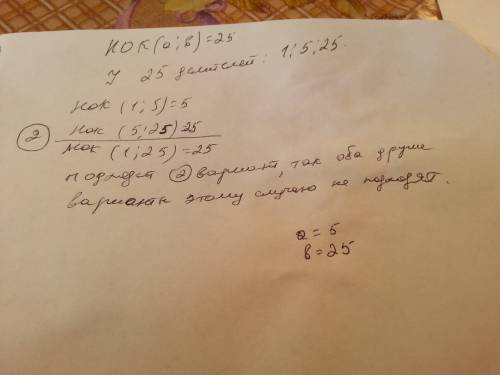 НОК(а;в)=25
У 25 делителей: 1;5;25.
НОК (1;5)=5
② НОК (5;25)25
НОК (1;25)=25
Подходет ② вариант, так оба други
варианты этому случаю не подходят.
а=5
в=25